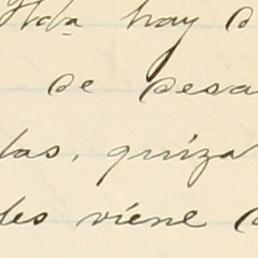 Hda hay
de desa
las, quiza
des viene